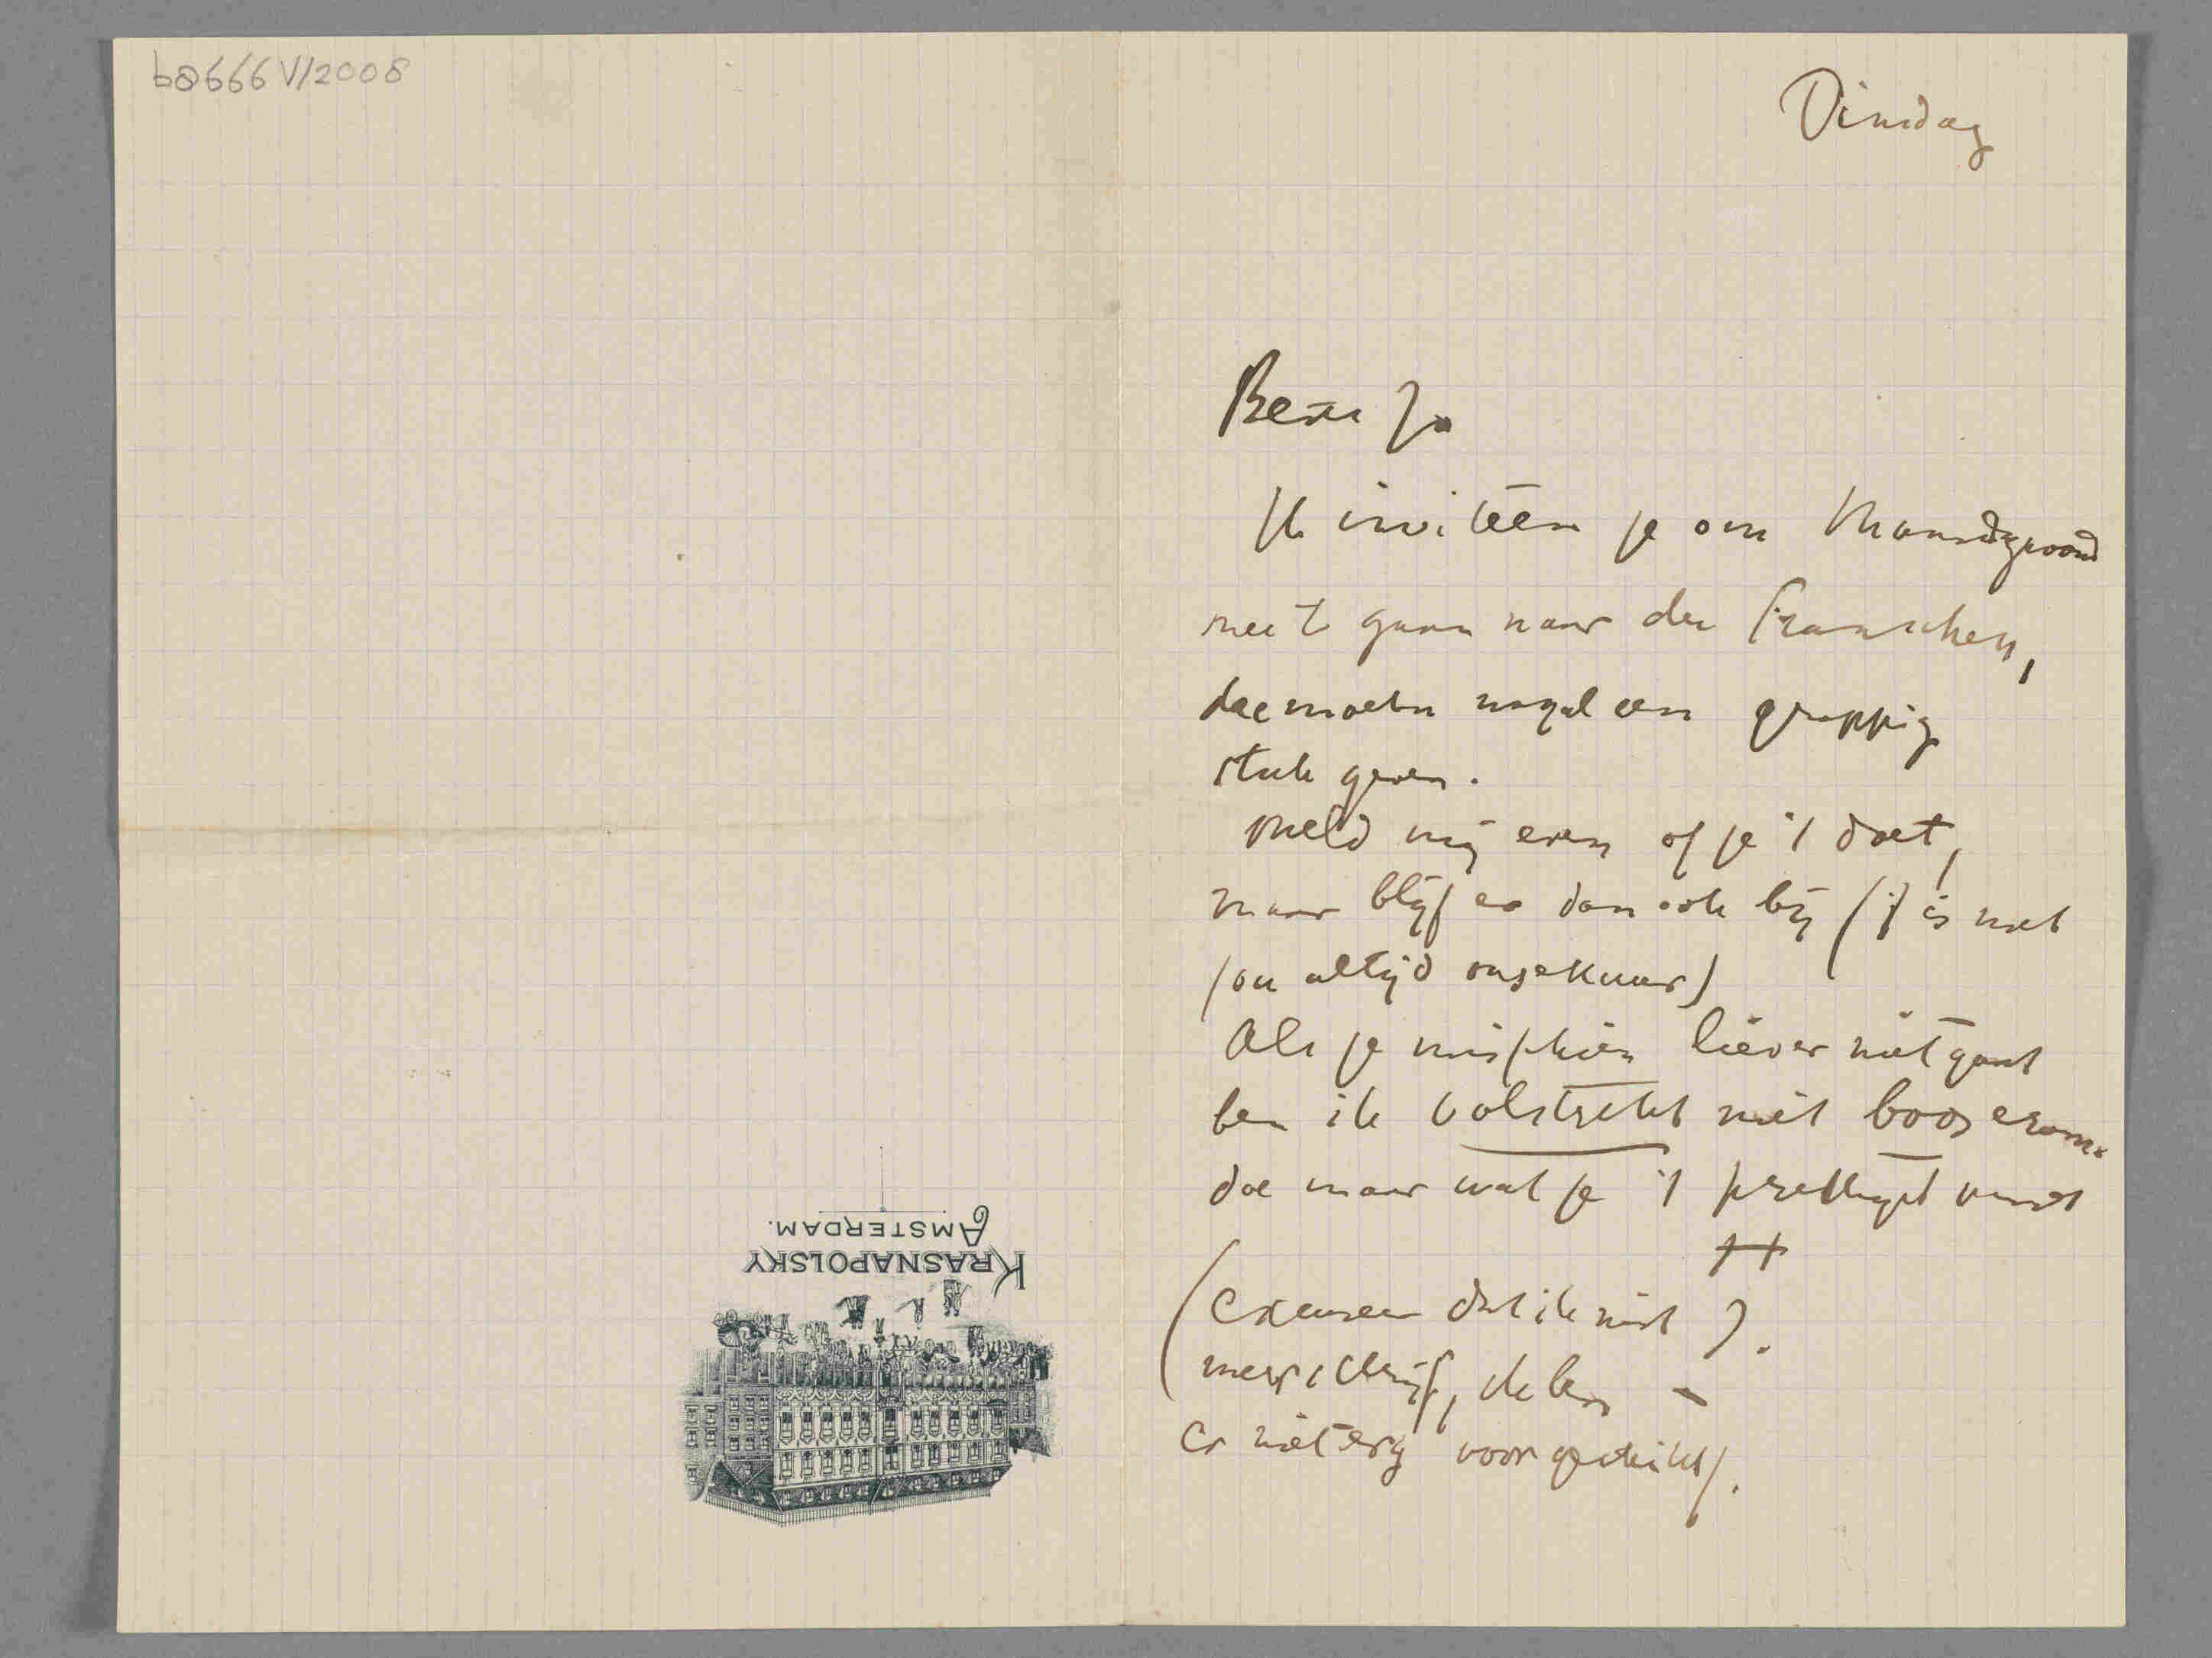 b8666 V/2008
Dinsdag
Beste Jo
Ik inviteer je om Maandagavond
mee te gaan naar de Franschen,
die moeten nogal een grappig
stuk geven.
Meld mij even of je 't doet,
maar blijf er dan ook bij (jij is met
jou altijd onsekuur)
Als je misschien liever niet gaat
ben ik volstrekt niet boos erom.
doe maar wat je 't prettigst vindt
(excuseer dat ik niet ).
meer schrijf, ik ben
er niet erg voor geschikt).
KRASNAPOLSKY
AMSTERDAM.